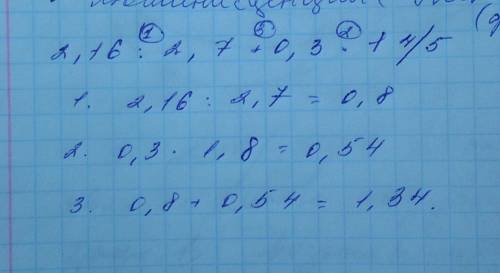 2,16 : 2,7 + 0,3 · 1 4/5
1. 2,16 : 2,7 = 0,8
2. 0,3 · 1,8 = 0,54
3. 0,8 + 0,54 = 1,34.